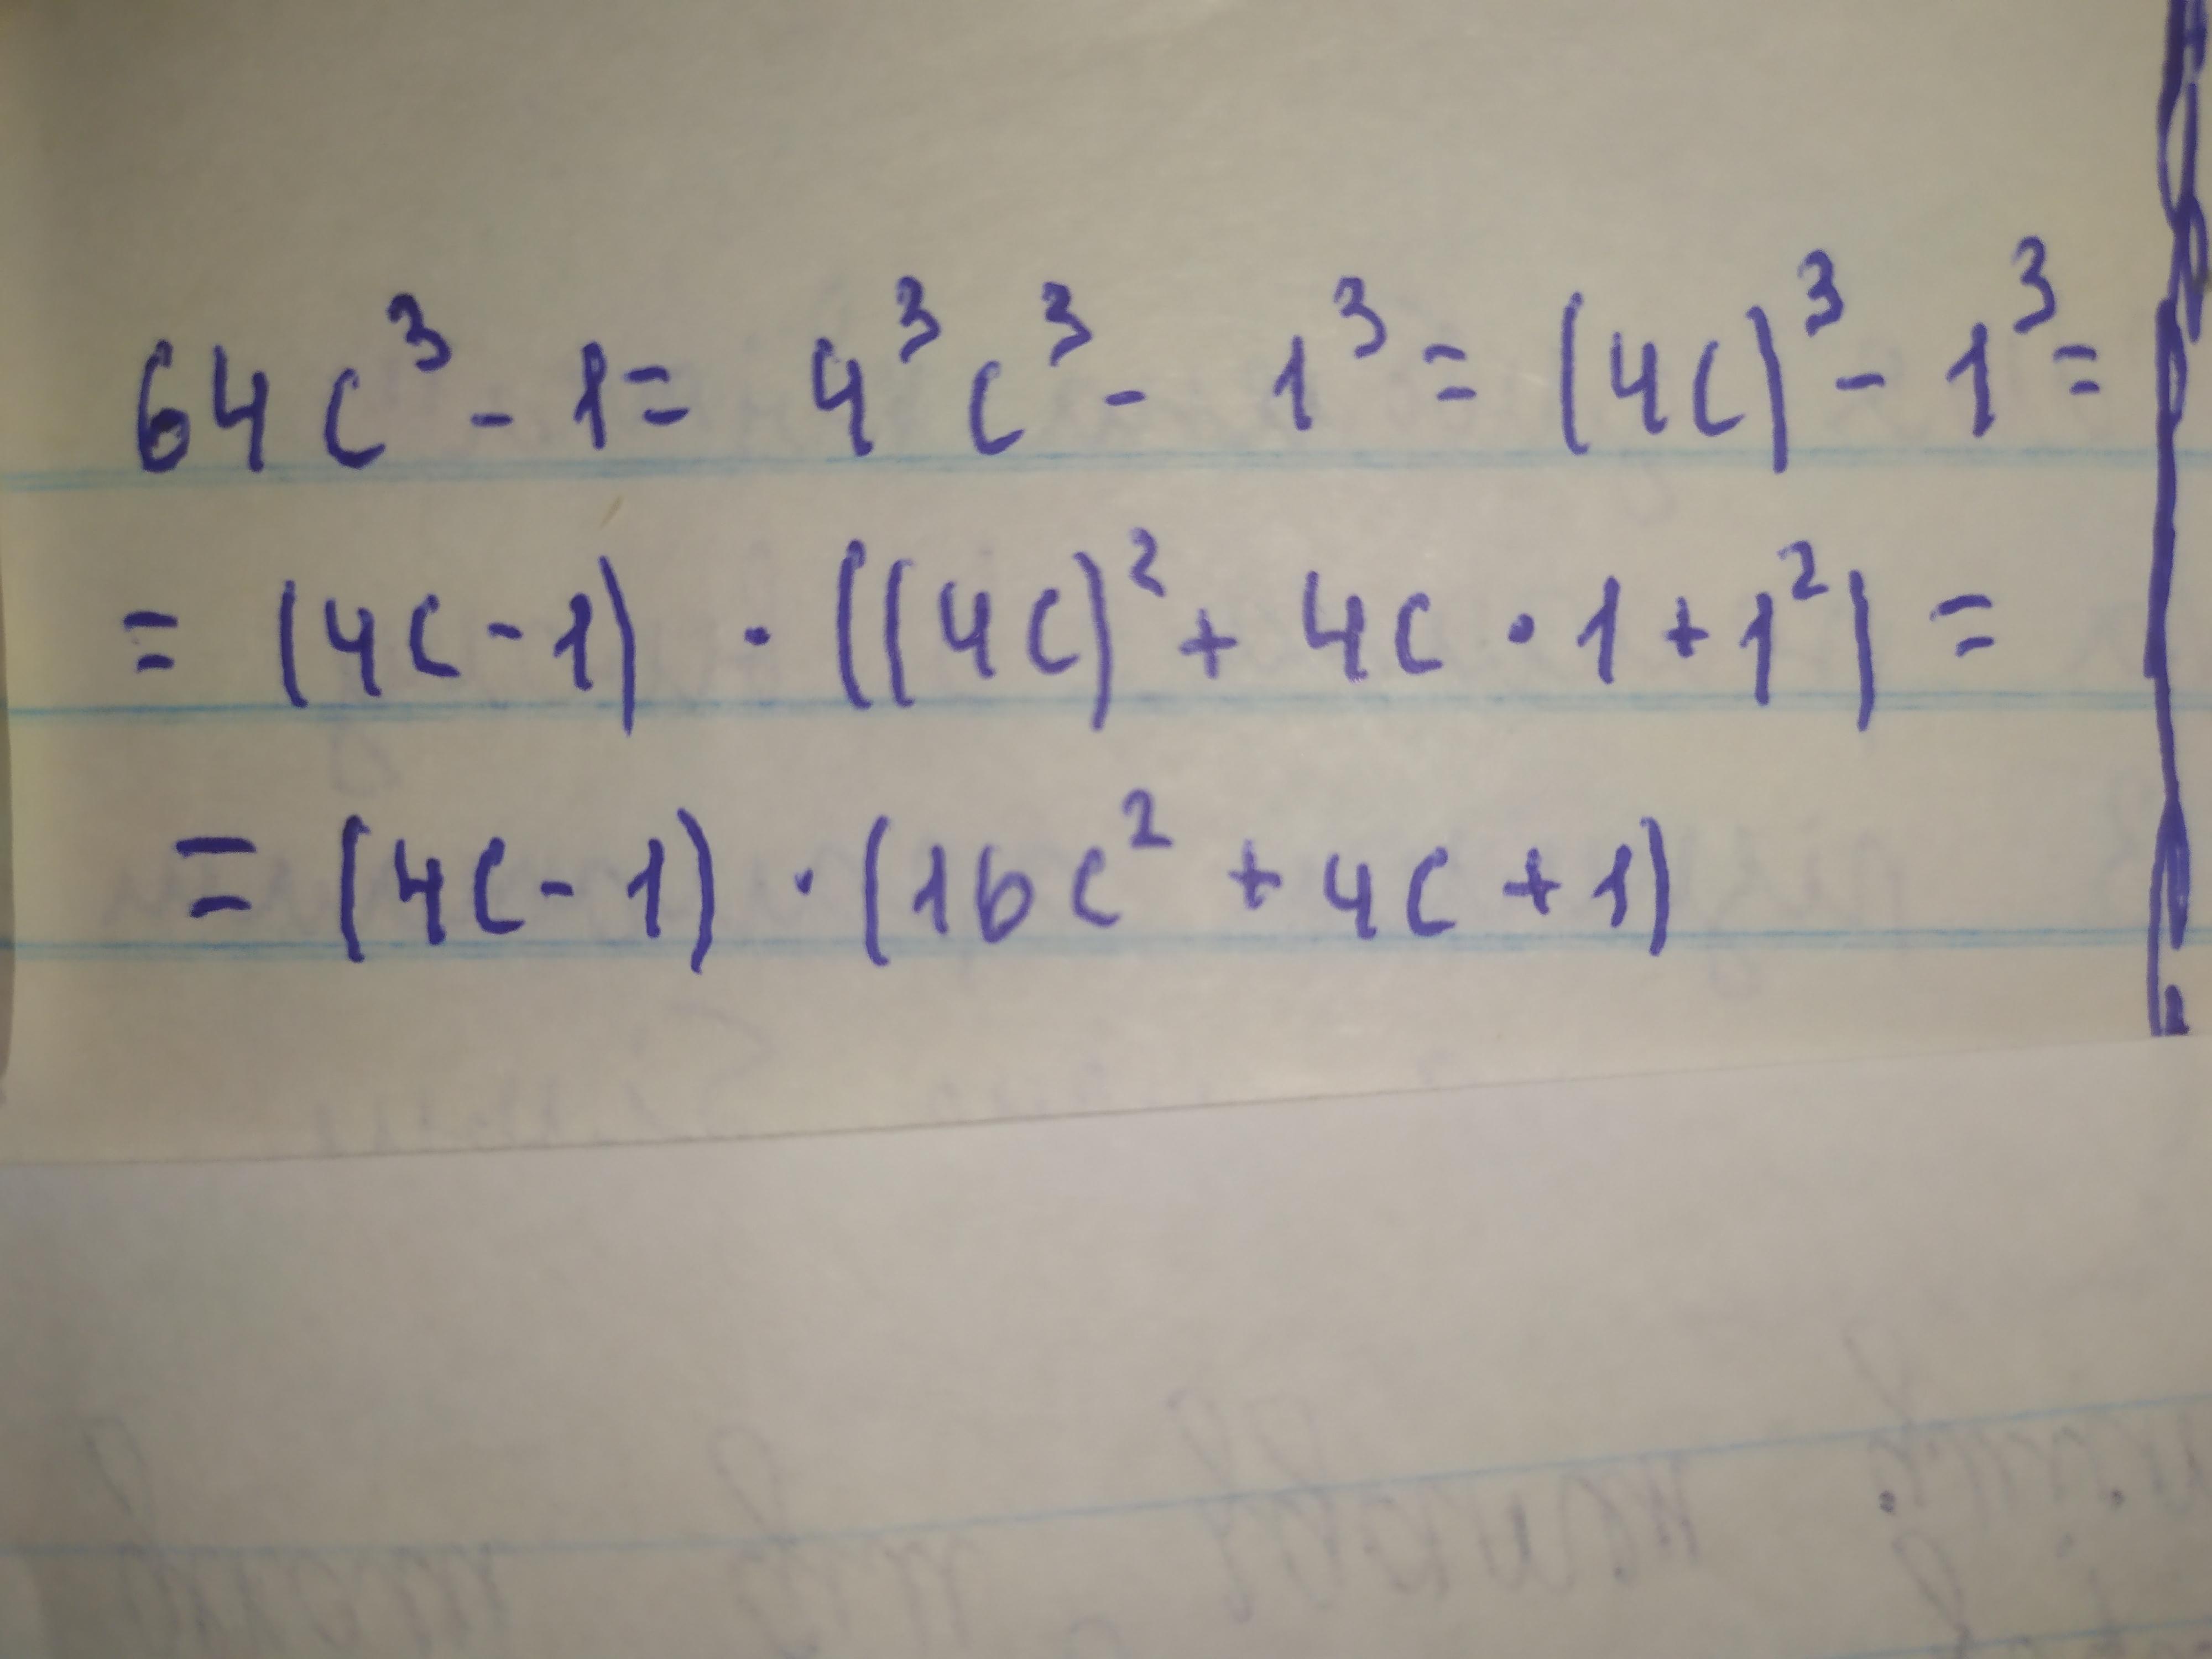 64c³ - 1 = 4³c³ - 1³ = (4c)³ - 1³ =
= (4c - 1) · ((4c)² + 4c · 1 + 1²) =
= (4c - 1) · (16c² + 4c + 1)